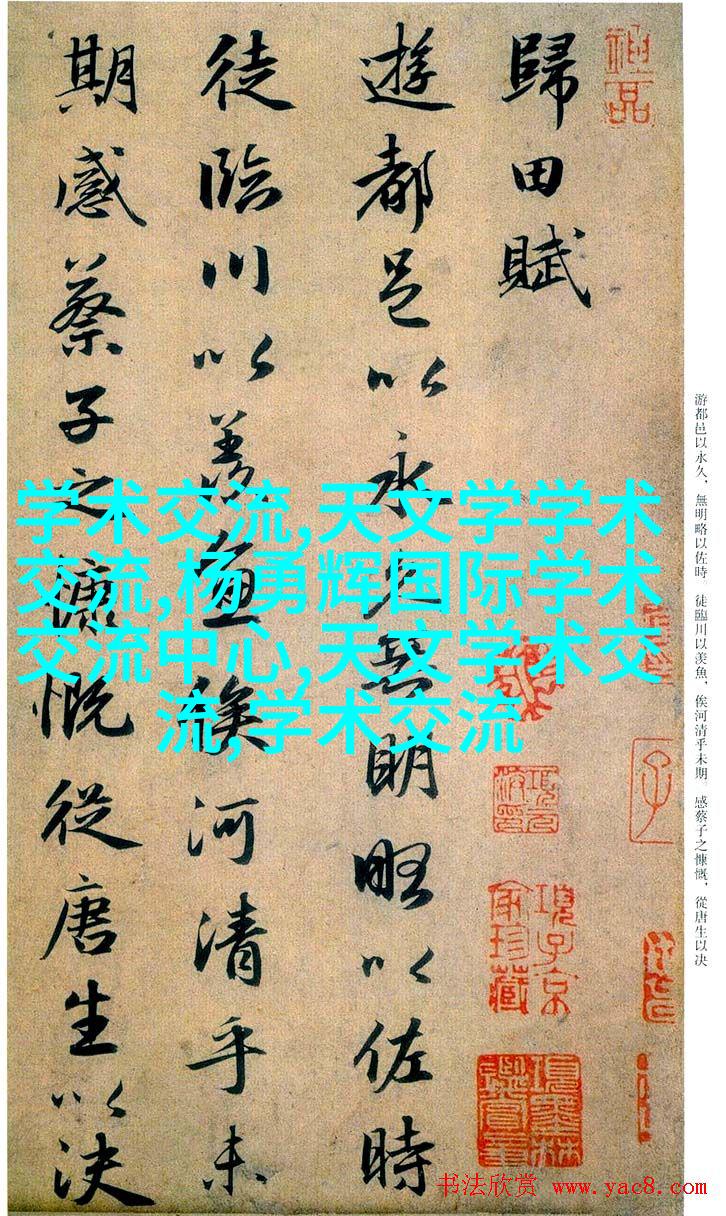 游都邑以永久，無明略以佐時。徒臨川以羨魚，俟河清乎未期。感蔡子之慷慨，從唐生以决
神品
歸田賦
項子京家珍藏
項墨林鑑賞章
遊都邑以永久無明略以佐時
徒臨川以羨魚俟河清乎未
期感蔡子之慷慨從唐生以决
学术交流,天文学学术
交流,杨勇辉国际学术
交流中心,天文学术交
流,学术交流
书法欣赏 www.yac8.com